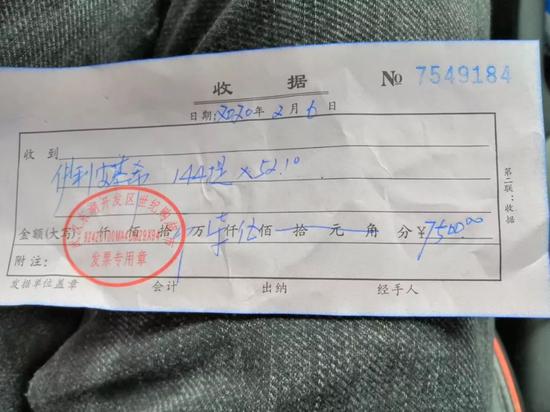 收 据
№ 7549184
日期：2020年2月6日
收到
伊利安慕希 144提×52.10
金额(大写) 仟 佰 拾 万柒仟伍佰 拾 元 角 分￥7500.00
附注：
发据单位盖章 会计 出纳 经手人
第二联：收据
开发区世纪
发票专用章